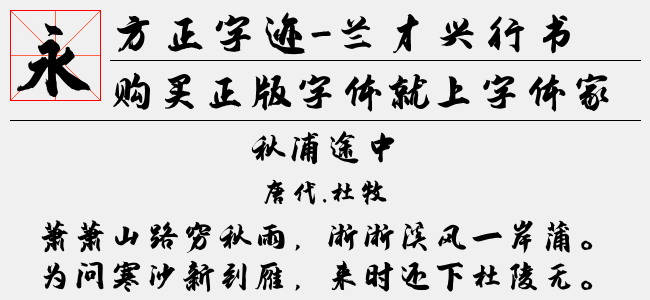 永
方正字迹-兰才兴行书
购买正版字体就上字体家
秋浦途中
唐代.杜牧
萧萧山路穷秋雨，浙浙溪风一岸蒲。
为问寒沙新到雁，来时还下杜陵无。